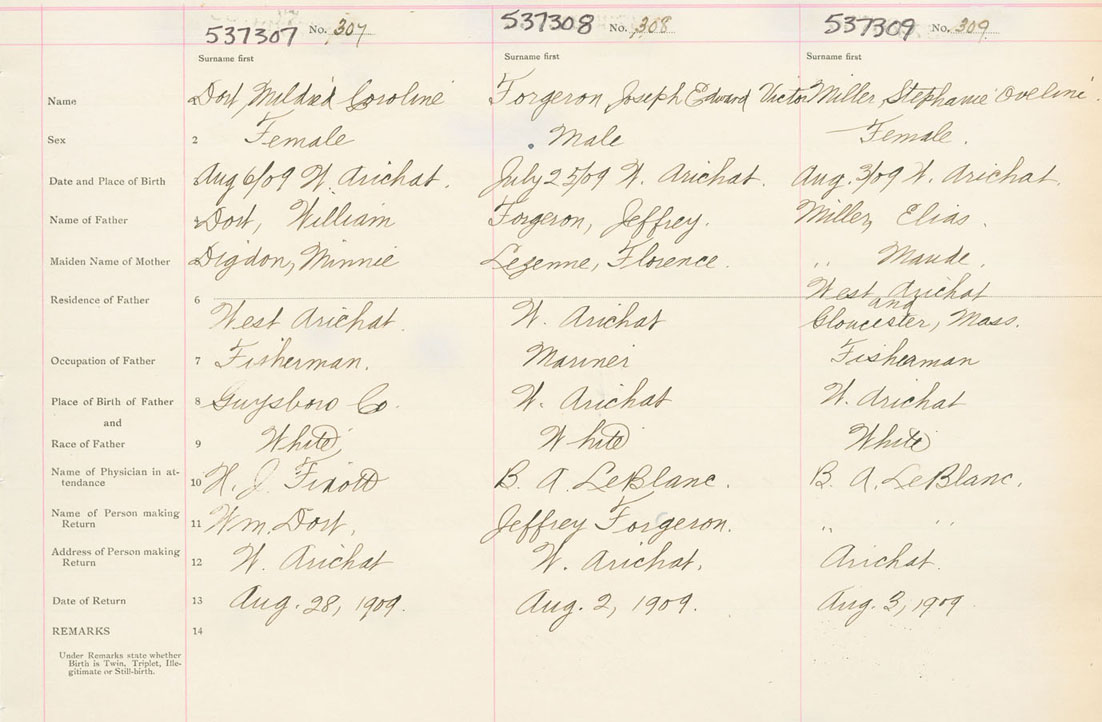 537307 No. 307 537308 No. 308 537309 No. 309
Surname first Surname first Surname first
Name Dort, Mildred Caroline Forgeron Joseph Edward Victor Miller, Stephanie Oveline
Sex 2 Female Male Female.
Date and Place of Birth Aug 6/09 W. Arichat. July 25/09 W. Arichat. Aug. 3/09 W. Arichat.
Name of Father 4 Dort, William Forgeron, Jeffrey. Miller, Elias.
Maiden Name of Mother Digdon, Minnie Lezenne, Florence. " Maude.
Residence of Father 6 West Arichat. W. Arichat West Arichat
and
Gloucester, Mass.
Occupation of Father 7 Fisherman. Mariner Fisherman
Place of Birth of Father 8 Guysboro Co. W. Arichat W. Arichat
and
Race of Father 9 White White White
Name of Physician in at-
tendance 10 H. J. B. A. LeBlanc. B. A. LeBlanc.
Name of Person making
Return 11 Wm. Dort, Jeffrey Forgeron. " "
Address of Person making
Return 12 W. Arichat W. Arichat, Arichat.
Date of Return 13 Aug. 28, 1909. Aug. 2, 1909. Aug. 3, 1909.
REMARKS 14
Under Remarks state whether
Birth is Twin, Triplet, Ille-
gitimate or Still-birth.